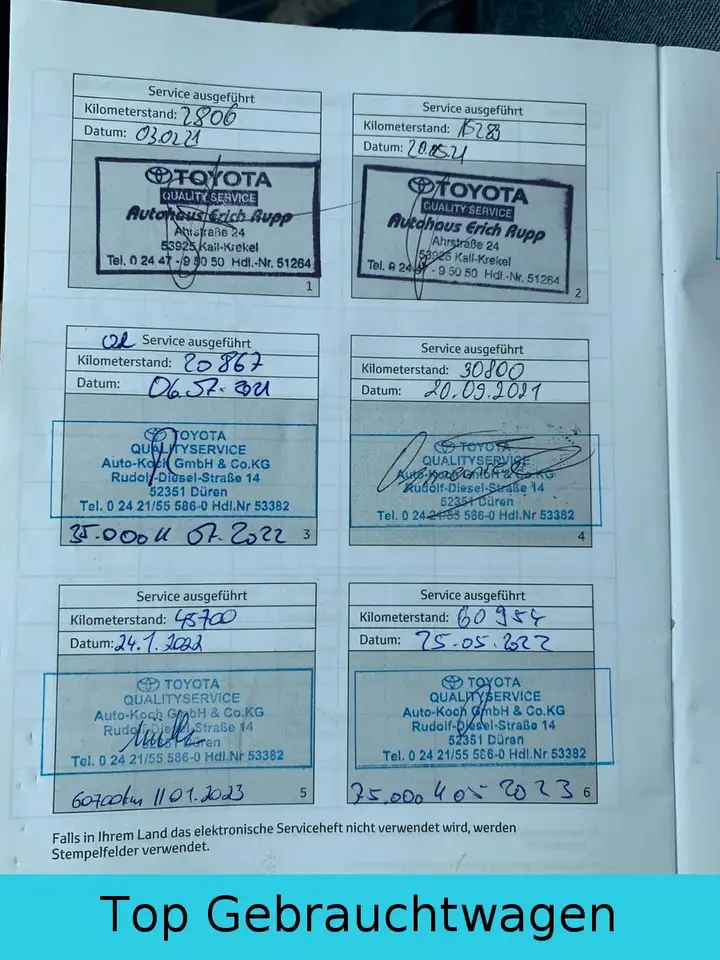 Service ausgeführt
Kilometerstand: 2806
Datum: 03.02.21
TOYOTA
QUALITY SERVICE
Autohaus Erich Rupp
Ahrstraße 24
53925 Kall-Krekel
Tel. 0 24 47 - 9 50 50 Hdl.-Nr. 51264
1
Service ausgeführt
Kilometerstand: 15283
Datum: 20.05.21
TOYOTA
QUALITY SERVICE
Autohaus Erich Rupp
Ahrstraße 24
53925 Kall-Krekel
Tel. 0 24 47 - 9 50 50 Hdl.-Nr. 51264
2
Service ausgeführt
Kilometerstand: 20867
Datum: 06.07.2021
TOYOTA
QUALITYSERVICE
Auto-Koch GmbH & Co.KG
Rudolf-Diesel-Straße 14
52351 Düren
Tel. 0 24 21/55 586-0 Hdl.Nr 53382
35.000 07.2022
3
Service ausgeführt
Kilometerstand: 30800
Datum: 20.09.2021
TOYOTA
QUALITYSERVICE
Auto-Koch GmbH & Co.KG
Rudolf-Diesel-Straße 14
52351 Düren
Tel. 0 24 21/55 586-0 Hdl.Nr 53382
4
Service ausgeführt
Kilometerstand: 45700
Datum: 24.1.2022
TOYOTA
QUALITYSERVICE
Auto-Koch GmbH & Co.KG
Rudolf-Diesel-Straße 14
52351 Düren
Tel. 0 24 21/55 586-0 Hdl.Nr 53382
60700km 01.2023
5
Service ausgeführt
Kilometerstand: 60954
Datum: 25.05.2022
TOYOTA
QUALITYSERVICE
Auto-Koch GmbH & Co.KG
Rudolf-Diesel-Straße 14
52351 Düren
Tel. 0 24 21/55 586-0 Hdl.Nr 53382
75.000 05 2023
6
Falls in Ihrem Land das elektronische Serviceheft nicht verwendet wird, werden
Stempelfelder verwendet.
Top Gebrauchtwagen